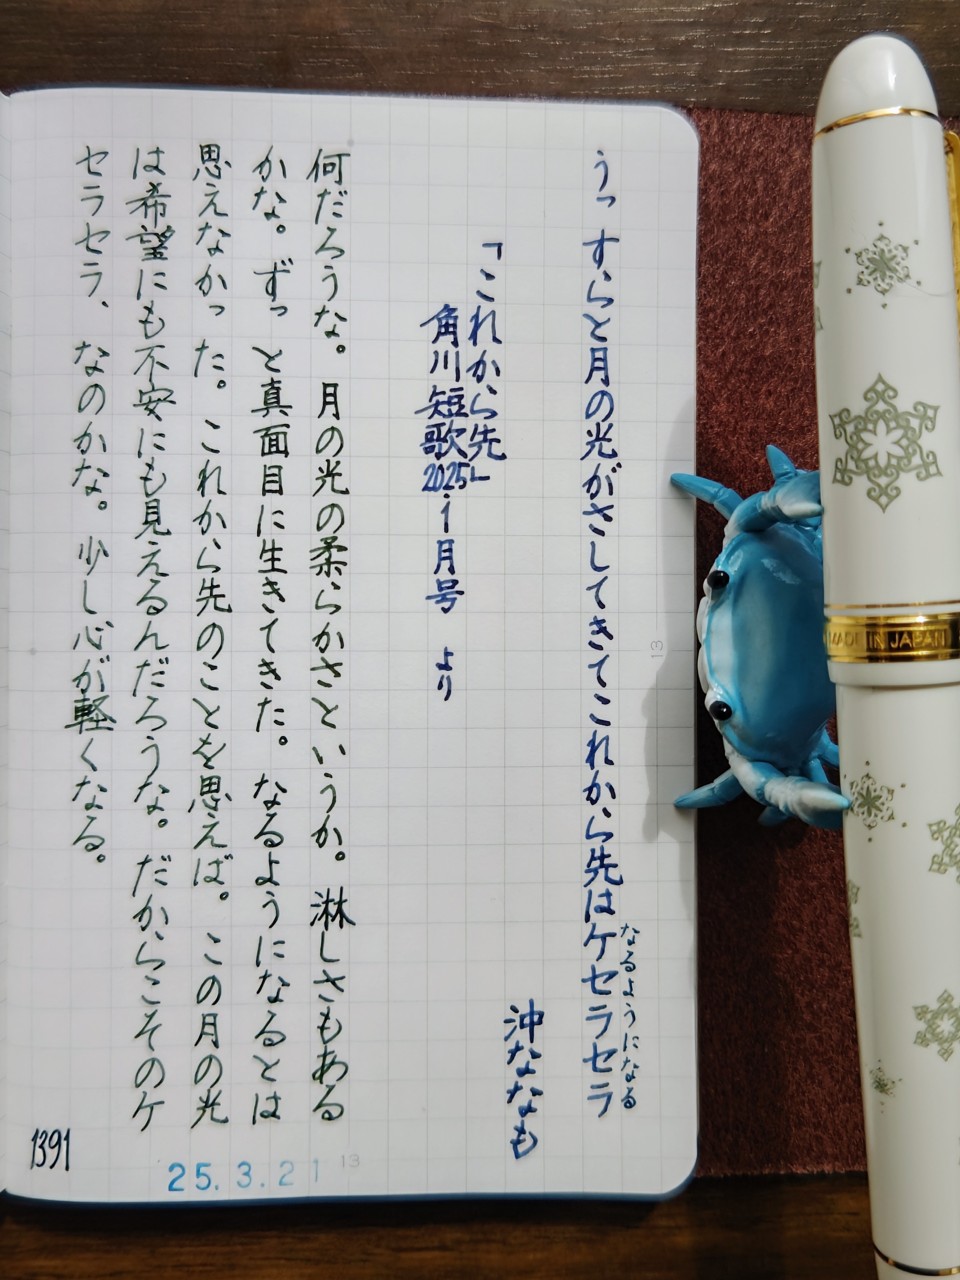 うっすらと月の光がさしてきてこれから先はケセラセラ
なるようになる
沖ななも
「これから先」
角川短歌2025.1月号 より
何だろうな。月の光の柔らかさというか。淋しさもある
かな。ずっと真面目に生きてきた。なるようになるとは
思えなかった。これから先のことを思えば。この月の光
は希望にも不安にも見えるんだろうな。だからこそのケ
セラセラ、なのかな。少し心が軽くなる。
1391
25.3.21
13
13
MADE IN JAPAN